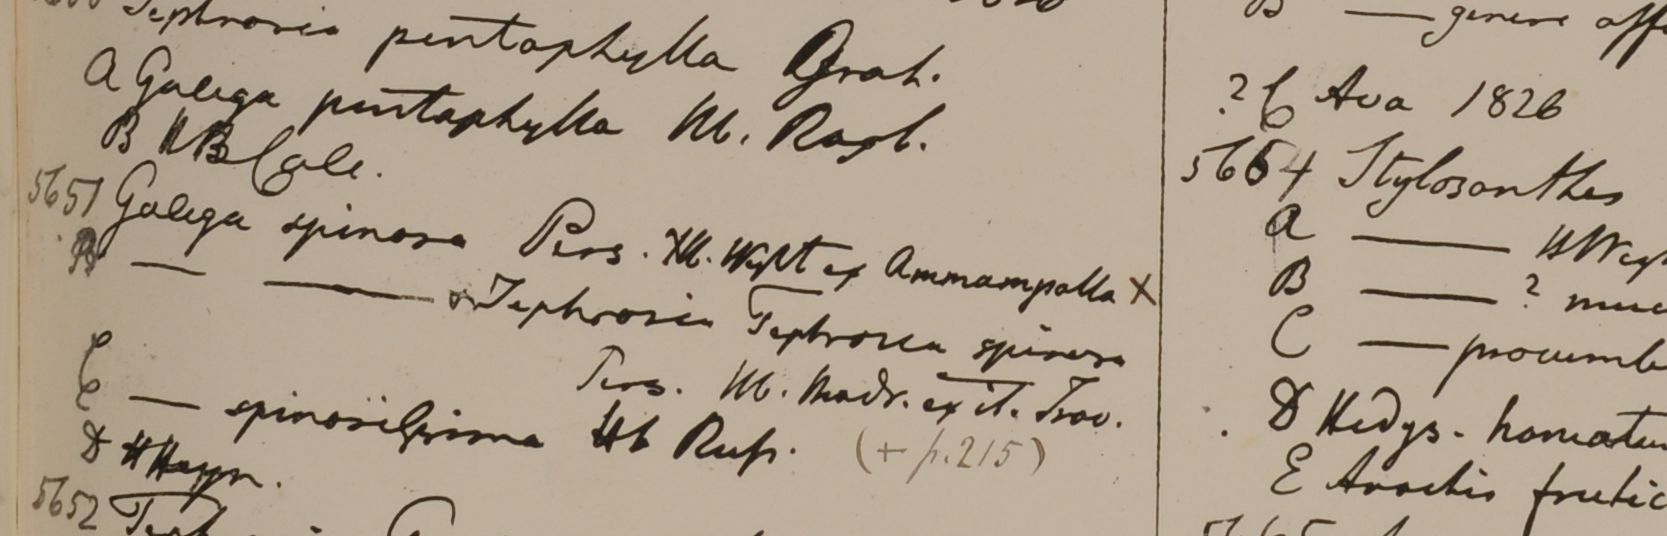 Tephrosia pentaphylla Grah.
A Galega pentaphylla Hb. Roxb.
B HBCalc.
5651 Galega spinosa Pers. Hb. Wight ex Ammampatta X
B — — Tephrosia Tephrosia spinosa
Pers. Hb. Madr. ex it. Trav.
C — spinosissima Hb Rufs. (+ p. 215)
D HHeyn.
5652
B — genere aff
? C Ava 1826
5664 Stylosanthes
A — HWigh
B — ? muc
C — procumb
D Hedys. hamatu
E Arachis frutic